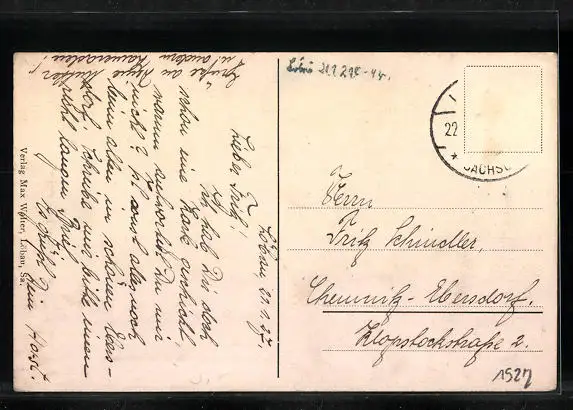 Löbau, 21.1.27.
Lieber Fritz!
Ich hab Dir doch
schon eine Karte geschickt,
warum antwortest Du mir
nicht? Ist sonst alles noch
beim alten im schönen Ebers-
dorf. Schreibe mir bitte einen
recht langen Brief.
Es grüßt Dein Horst.
Grüße an Deine Mutter
u. andern Kameraden!
Verlag Max Walter, Löbau, Sa.
Löbau 21.1.27
22
SACHS
Herrn
Fritz Schindler,
Chemnitz-Ebersdorf.
Klopstockstraße 2.
1927